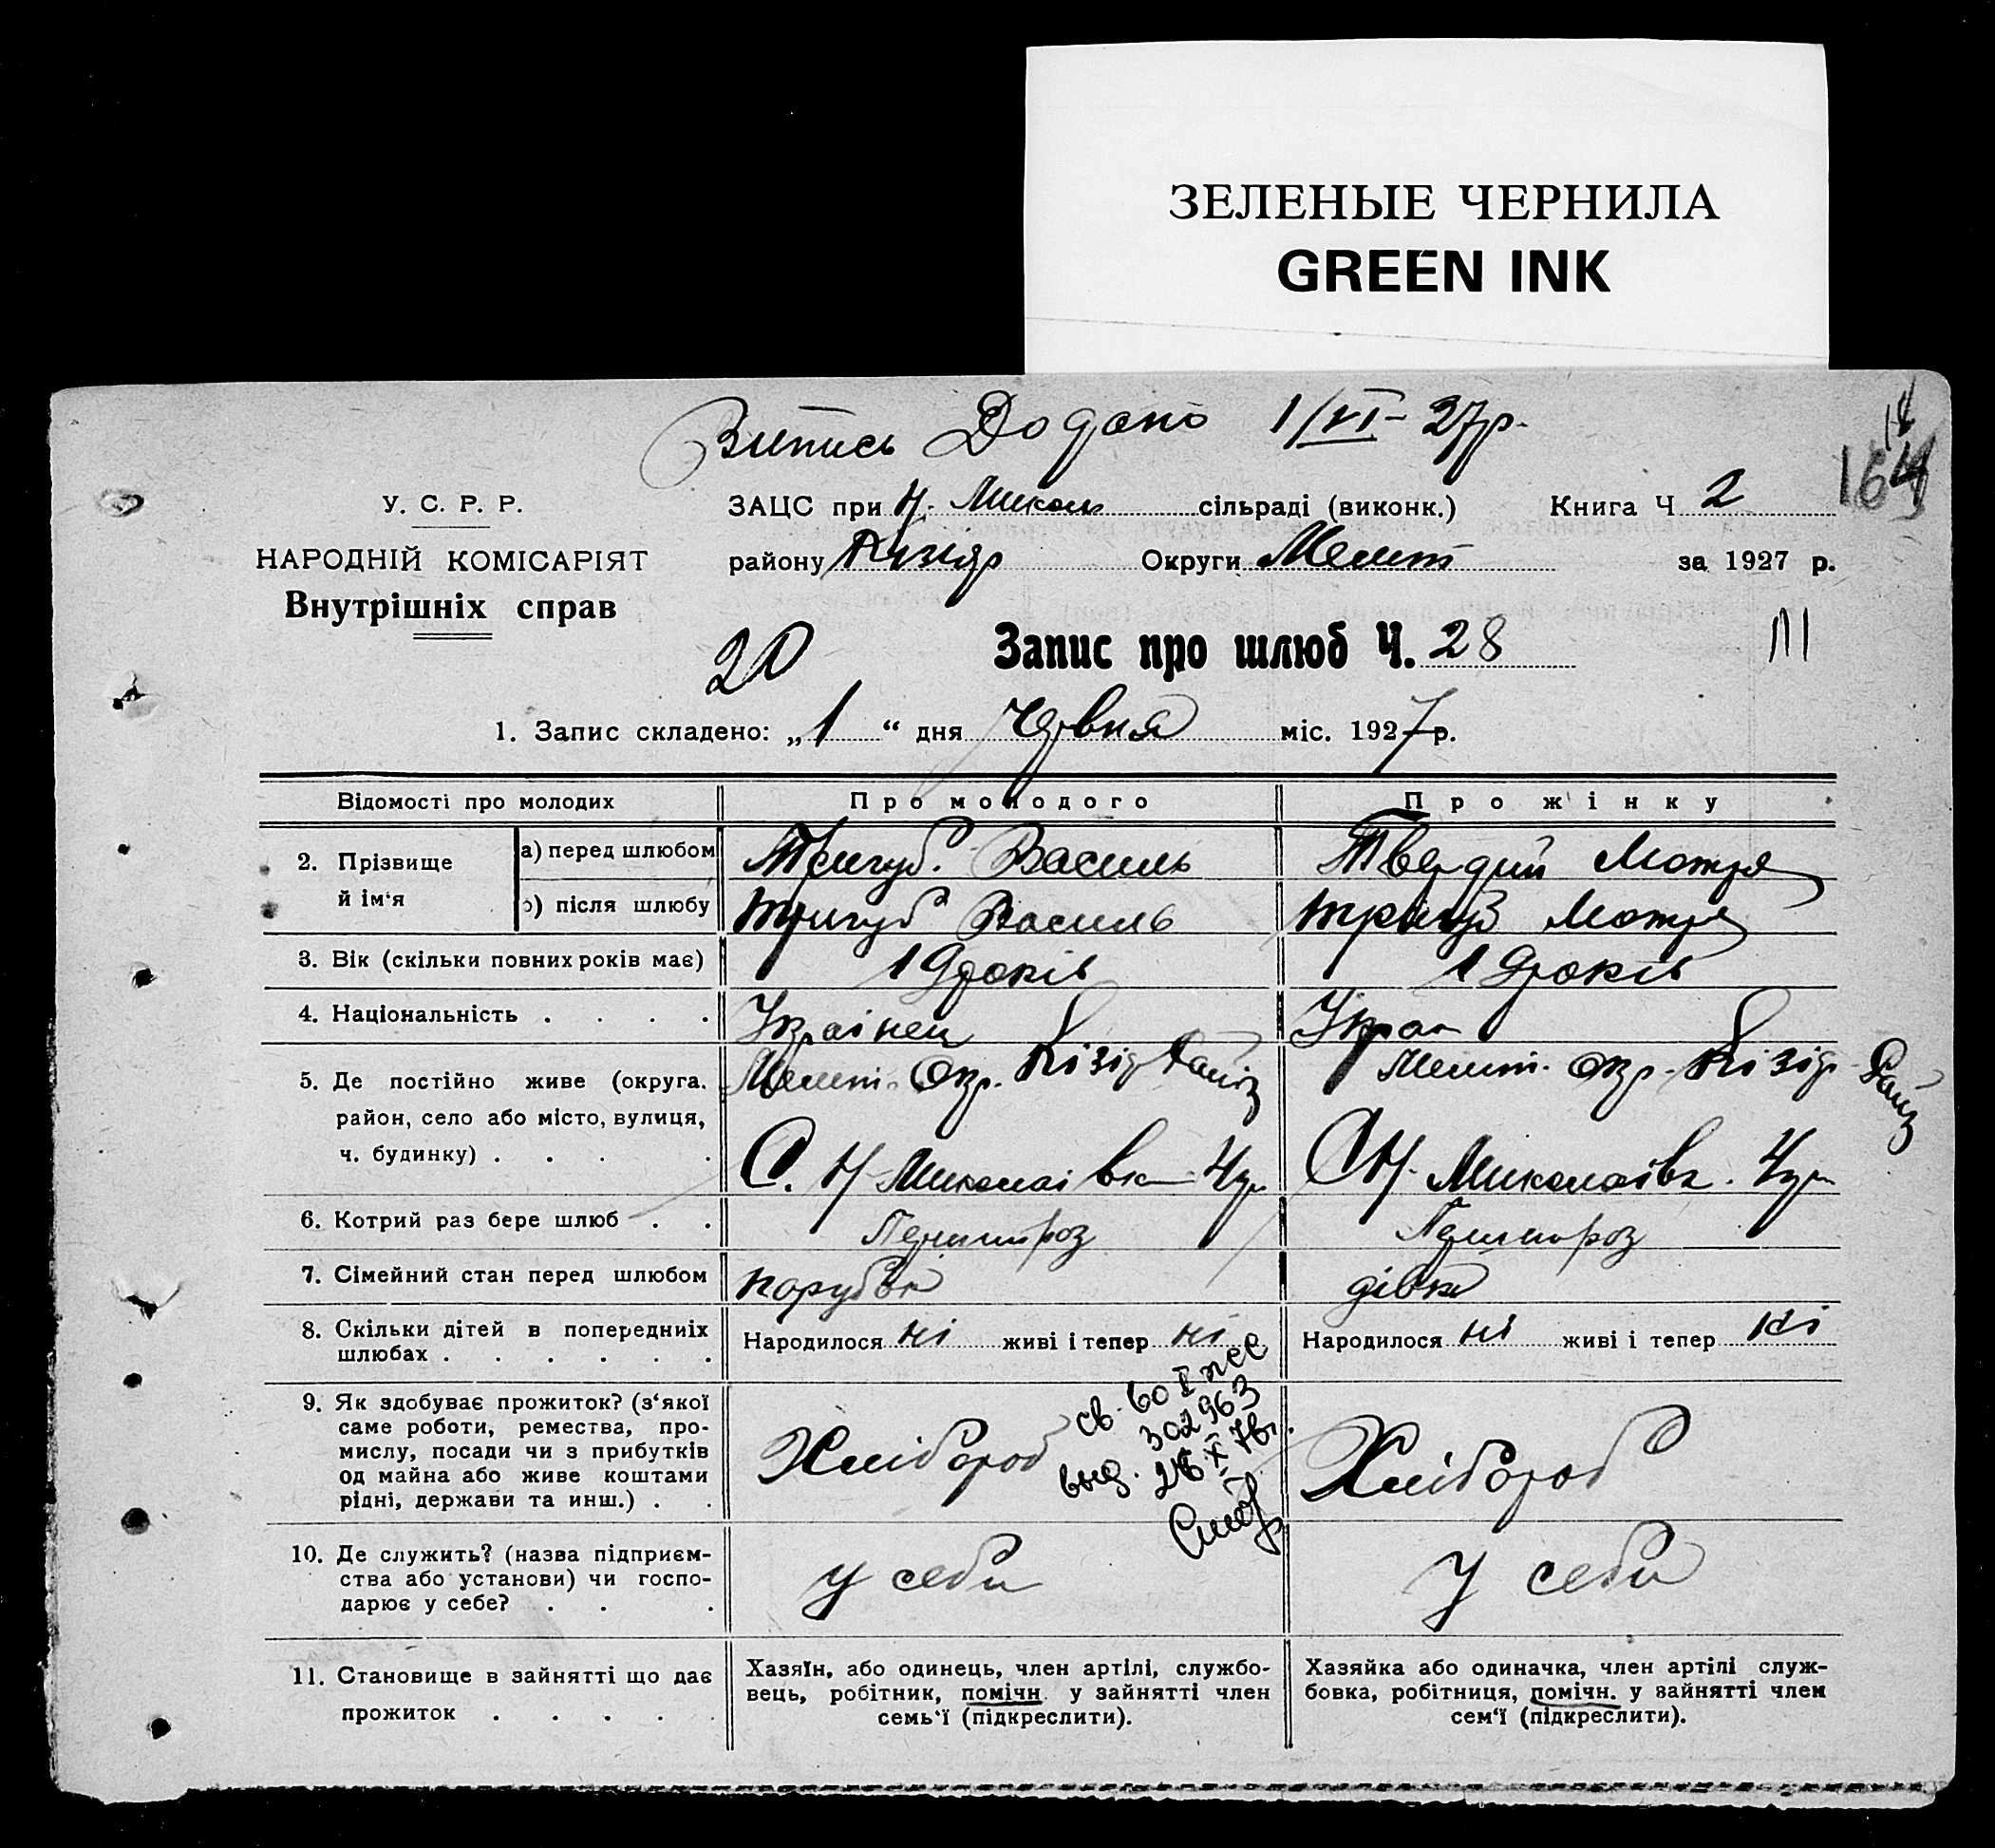 ЗЕЛЕНЫЕ ЧЕРНИЛА
GREEN INK
Випись Додано 1/VI-27р.
164
У. С. Р. Р. ЗАЦС при Н. Микол сільраді (виконк.) Книга Ч 2
НАРОДНІЙ КОМІСАРІЯТ району Кизияр Округи Мелит за 1927 р.
Внутрішніх справ
20 Запис про шлюб Ч. 28
1. Запис складено: „1“ дня Червня міс. 1927 р.
Відомості про молодих Про молодого Про жінку
2. Прізвище й ім‘я а) перед шлюбом Тригуб Василь Твердий Мотря
б) після шлюбу Тригуб Василь Тригуб Мотря
3. Вік (скільки повних років має) 19 років 19 років
4. Національність . . . . Українец Укра
5. Де постійно живе (округа, Меліт. Окр. Кізіяр Меліт. Окр. Кізіяр
район, село або місто, вулиця, С. Н-Миколаівка С Н. Миколаівк.
ч. будинку) . . . .
6. Котрий раз бере шлюб . . Перший раз Перший раз
7. Сімейний стан перед шлюбом парубок дівка
8. Скільки дітей в попередниіх Народилося ні живі і тепер ні Народилося ні живі і тепер ні
шлюбах . . . . . .
9. Як здобуває прожиток? (з‘якої
саме роботи, ремества, про-
мислу, посади чи з прибутків
од майна або живе коштами
рідні, держави та инш.) . .
Хлібороб
св. 60
302963
выд. X
Хлібороб
10. Де служить? (назва підприєм-
ства або установи) чи госпо-
дарює у себе? . . .
у себи у себи
11. Становище в зайнятті що дає
прожиток . . . . .
Хазяїн, або одинець, член артілі, службо-
вець, робітник, помічн. у зайнятті член
семь‘ї (підкреслити).
Хазяйка або одиначка, член артілі служ-
бовка, робітниця, помічн. у зайнятті член
сем‘ї (підкреслити).